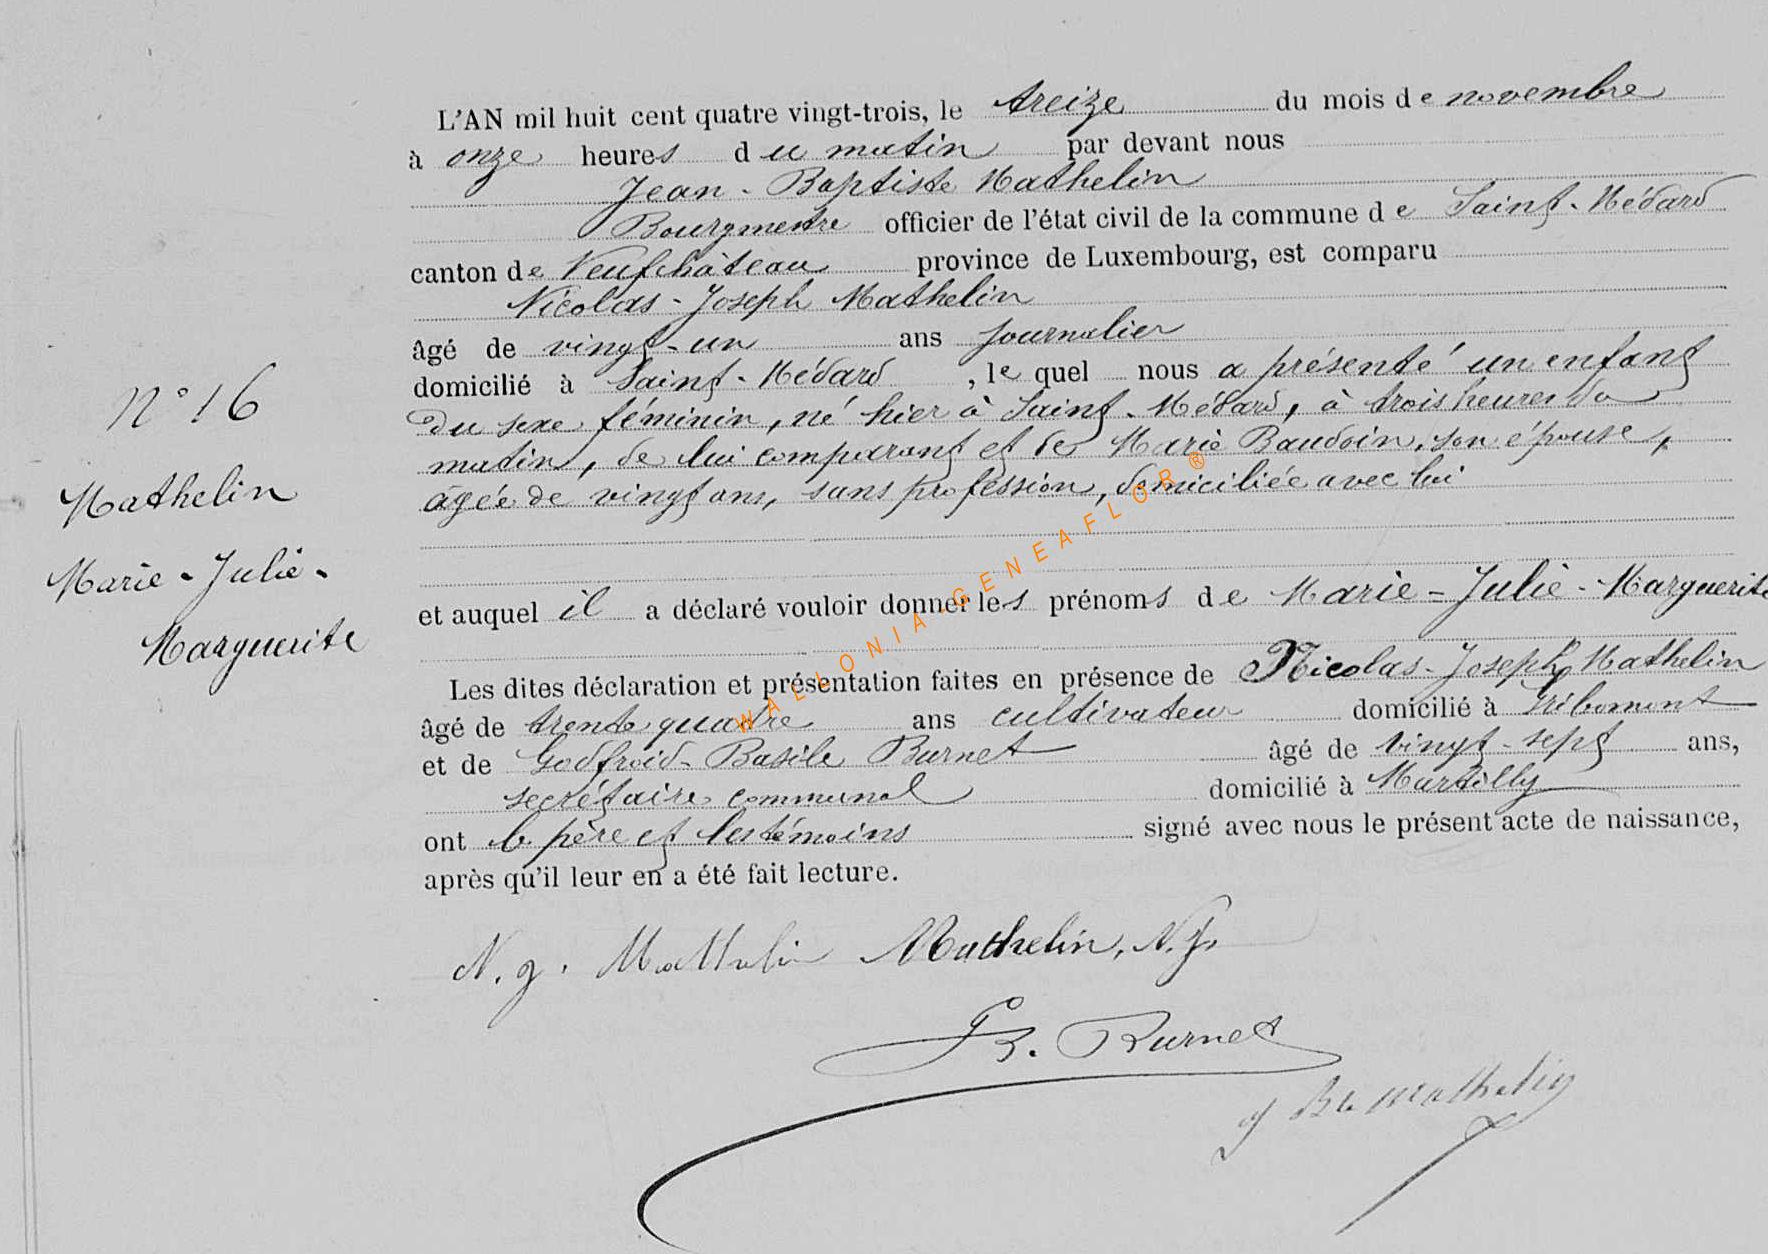 L'AN mil huit cent quatre vingt-trois, le treize du mois de novembre
à onze heures du matin par devant nous
Jean-Baptiste Mathelin
Bourgmestre officier de l'état civil de la commune de Saint-Médard
canton de Neufchâteau province de Luxembourg, est comparu
Nicolas-Joseph Mathelin
âgé de vingt-un ans journalier
domicilié à Saint-Médard, le quel nous a présenté un enfant
du sexe féminin, né hier à Saint-Médard, à trois heures du
matin, de lui comparant et de Marie Baudoin, son épouse,
âgée de vingt ans, sans profession, domiciliée avec lui
et auquel il a déclaré vouloir donner les prénoms de Marie=Julie-Marguerite
Les dites déclaration et présentation faites en présence de Nicolas-Joseph Mathelin
âgé de trente quatre ans cultivateur domicilié à Gribomont
et de Godfroid-Basile Burnet âgé de vingt-sept ans,
secrétaire communal domicilié à Martilly
ont le père et les témoins signé avec nous le présent acte de naissance,
après qu'il leur en a été fait lecture.
N. J. Mathelin Mathelin, N. J.
G B. Burnet
J Bte Mathelin
N° 16
Mathelin
Marie-Julie-
Marguerite
WALLONIA-GENEAFLOR ®